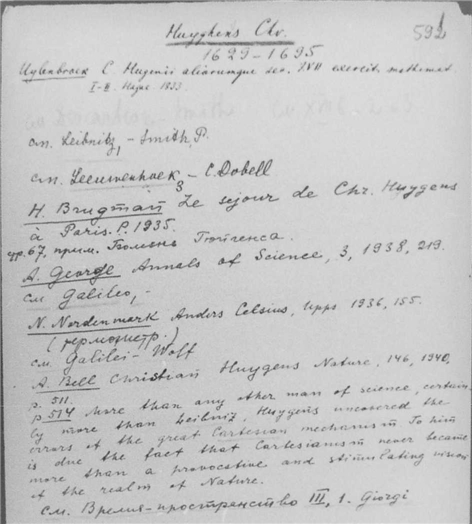 Huyghens Chr. 592
1629-1695
Uylenbroek C. Hugenii aliorumque sec. XVII exercit. mathemat.
I-II. Hagae 1833
см. Leibnitz, - Smith, P.
см. Leeuwenhoek, - C. Dobell
H. Brugman Le sejour de Chr. Huygens
à Paris. P. 1935.
67, прим. Гюйгенса.
A. George Annals of Science, 3, 1938, 219.
см Galileo, -
N. Nordenmark Anders Celsius, Upps 1936, 155.
(термометр.)
см. Galilei - Wolf
A. Bell Christian Huygens Nature, 146, 1940,
p. 511.
p 514 More than any other man of science, certain-
ly more than Leibniz, Huygens uncovered the
errors of the great Cartesian mechanism To him
is due the fact that Cartesianism never became
more than a provocative and stimulating vision
of the realm of Nature.
см. Время-пространство III, 1. Giorgi